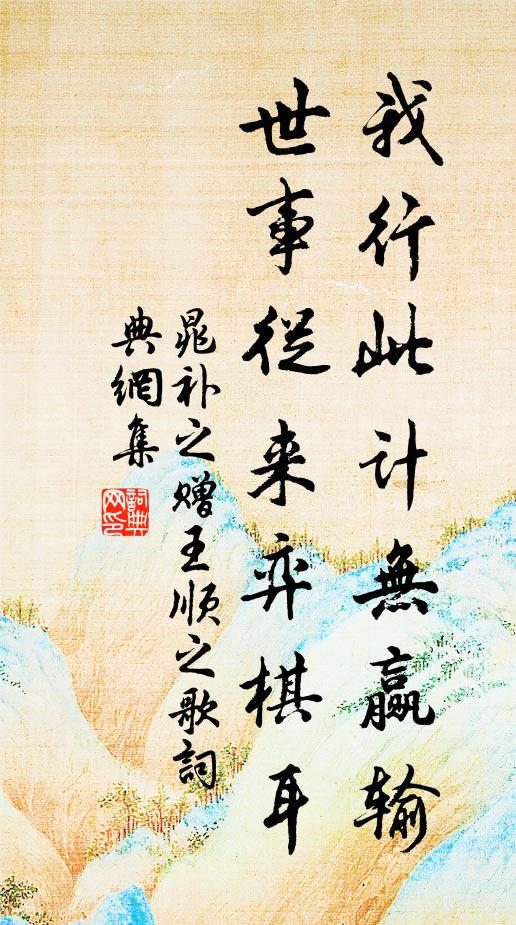 我行此计無赢输
世事從来弈棋耳
晁补之赠王顺之歌詞
典網集
詞典網印